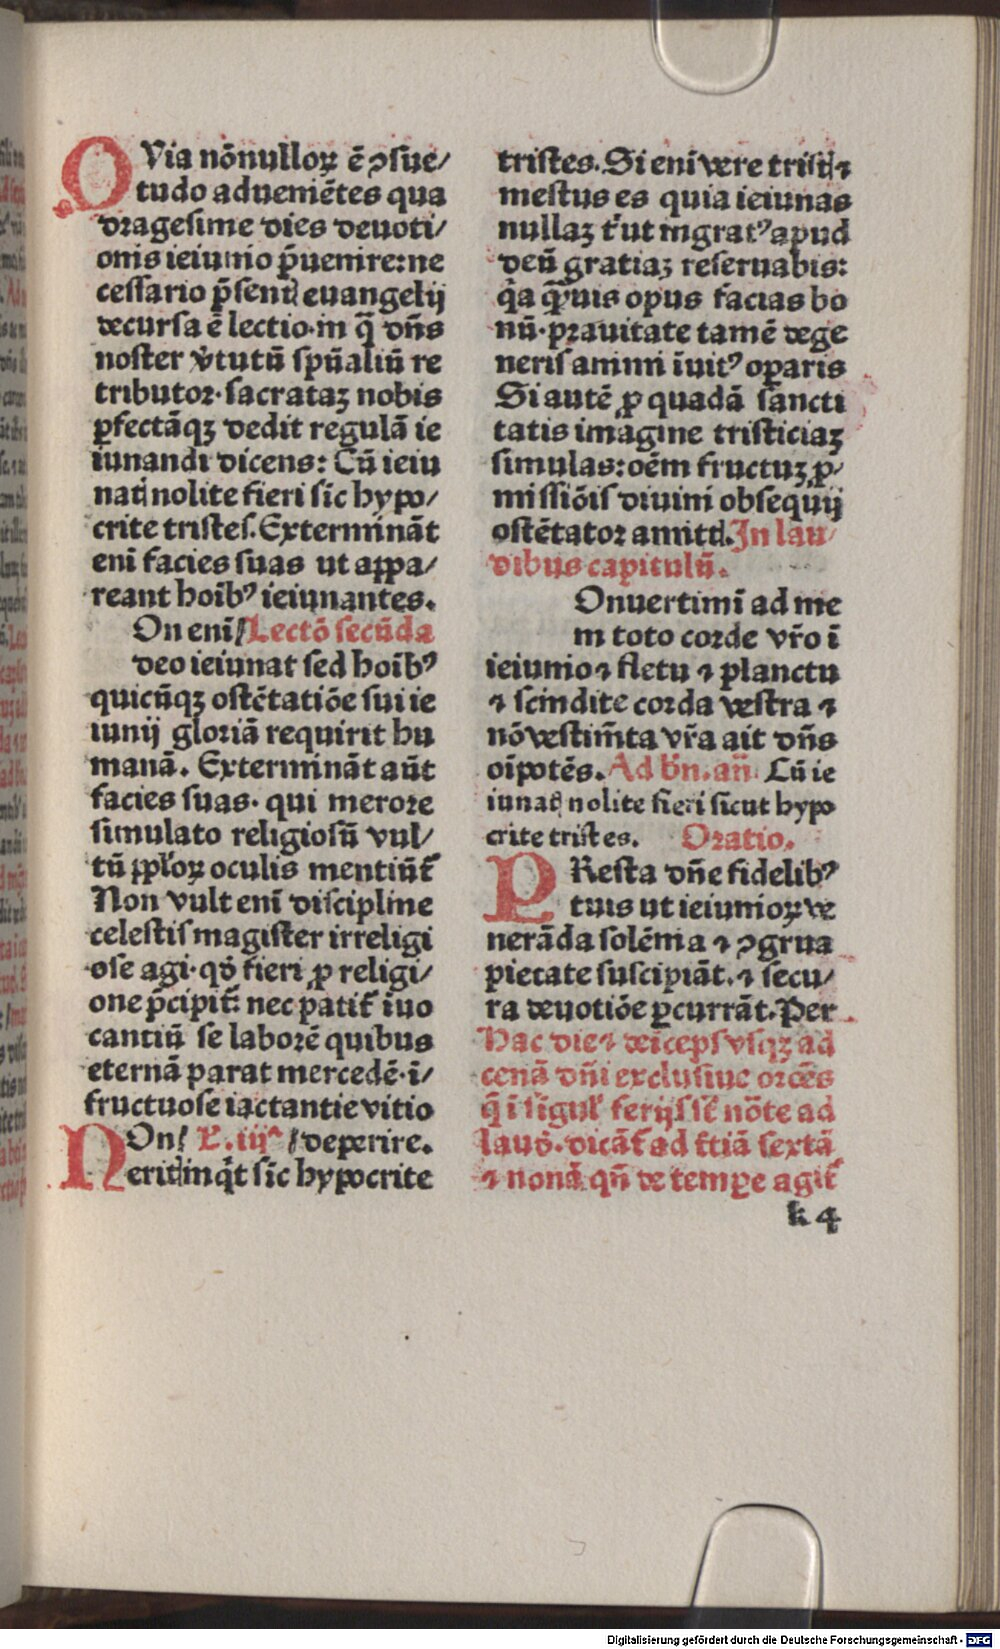 QVia nōnulloꝝ ē ꝯsue/
tudo adueniētes qua
dragesime dies deuoti/
onis ieiunio p̄uenire: ne
cessario p̄senꝭ euangelij
decursa ē lectio. in q̄ dn̄s
noster v̓tutū spūaliū re
tributor. sacrataꝫ nobis
ꝑfectāqꝫ dedit regulā ie
iunandi dicens: Cū ieiu
natꝭ nolite fieri sic hypo/
crite tristes. Extermināt
eni facies suas ut appa/
reant hoīb⁹ ieiunantes.
On eni / Lectō secūda
deo ieiunat sed hoīb⁹
quicūqꝫ ostētatiōe sui ie
iunij gloriā requirit hu
manā. Extermināt aūt
facies suas. qui merore
simulato religiosū vul/
tū ppłoꝝ oculis mentiūt᷑
Non vult eni discipline
celestis magister irreligi
ose agi. qd̓ fieri ꝓ religi/
one p̄cipit᷑. nec patit᷑ īuo
cantiū se laborē quibus
eternā parat mercedē. ī/
fructuose iactantie vitio
NOn / L. iijᵃ / deperire.
eritꝭ inqͥt sic hypocrite
tristes. Si eni vere tristꝭ ⁊
mestus es quia ieiunas
nullaꝫ t᷑ ut ingrat⁹ apud
deū gratiaꝫ reseruabis:
qͥa qͣꝫuis opus facias bo
nū. prauitate tamē dege
neris animi īuit⁹ oꝑaris
Si autē ꝓ quadā sancti
tatis imagine tristiciaꝫ
simulas: oēm fructuꝫ ꝓ/
missiōis diuini obsequij
ostētator amittꝭ. In lau/
dibus capitulū.
Onuertimī ad me
in toto corde vr̄o ī
ieiunio ⁊ fletu ⁊ planctu
⁊ scindite corda vestra ⁊
nō vestim̄ta vr̄a ait dn̄s
oīpotēs. Ad bn̄. an̄. Cū ie
iunatꝭ nolite fieri sicut hypo
crite tristes. Oratio.
PResta dn̄e fidelib⁹
tuis ut ieiunioꝝ ve
nerāda solēnia ⁊ ꝯgrua
pietate suscipiāt. ⁊ secu/
ra deuotiōe ꝑcurrāt. Per
Hac die ⁊ deīceps vsqꝫ ad
cenā dn̄i exclusiue orōes
q̄ ī siguł ferijs sc̄t nōte ad
laud̓. dicāt᷑ ad t̓tiā sextā
⁊ nonā qn̄ de tempe agit᷑
k 4
Digitalisierung gefördert durch die Deutsche Forschungsgemeinschaft - DFG